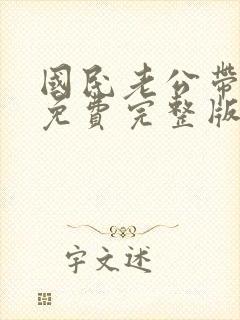 國民老公帶
免費完整版
宇文述